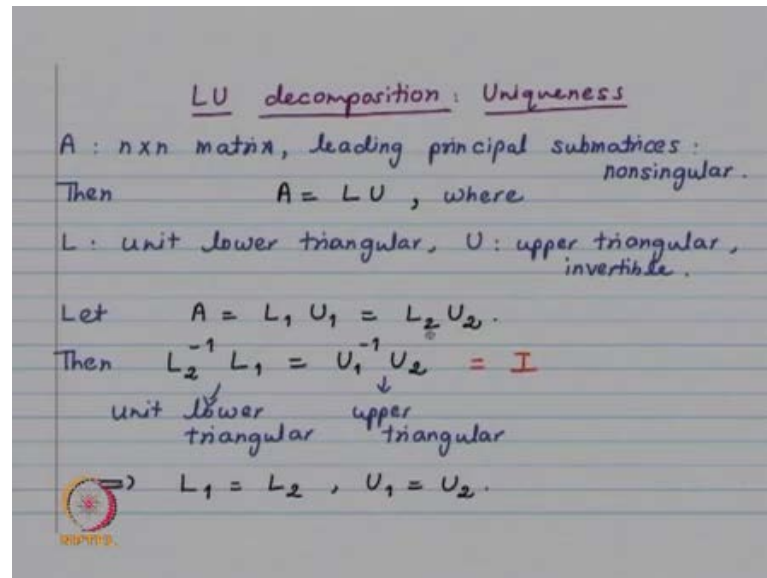 LU decomposition : Uniqueness
A : n x n matrix, leading principal submatrices :
nonsingular.
Then A = L U , where
L : unit lower triangular, U : upper triangular,
invertible.
Let A = L₁ U₁ = L₂ U₂ .
Then L₂⁻¹ L₁ = U₁⁻¹ U₂ = I
unit lower triangular
upper triangular
⇒ L₁ = L₂ , U₁ = U₂ .
NPTEL